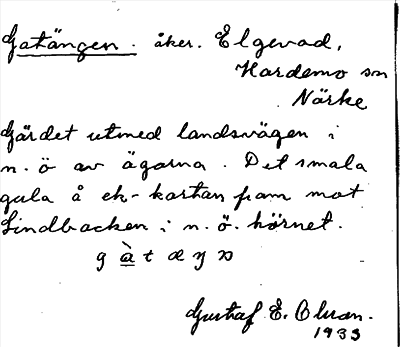 Gatängen. åker. Elgevad,
Hardemo sn
Närke
Gärdet utmed landsvägen i
n.ö av ägorna. Det smala
gula å ek-kartan fram mot
Lindbacken i n.ö. hörnet.
g à t æ y ꝏ
Gustaf E. Olsson.
1933